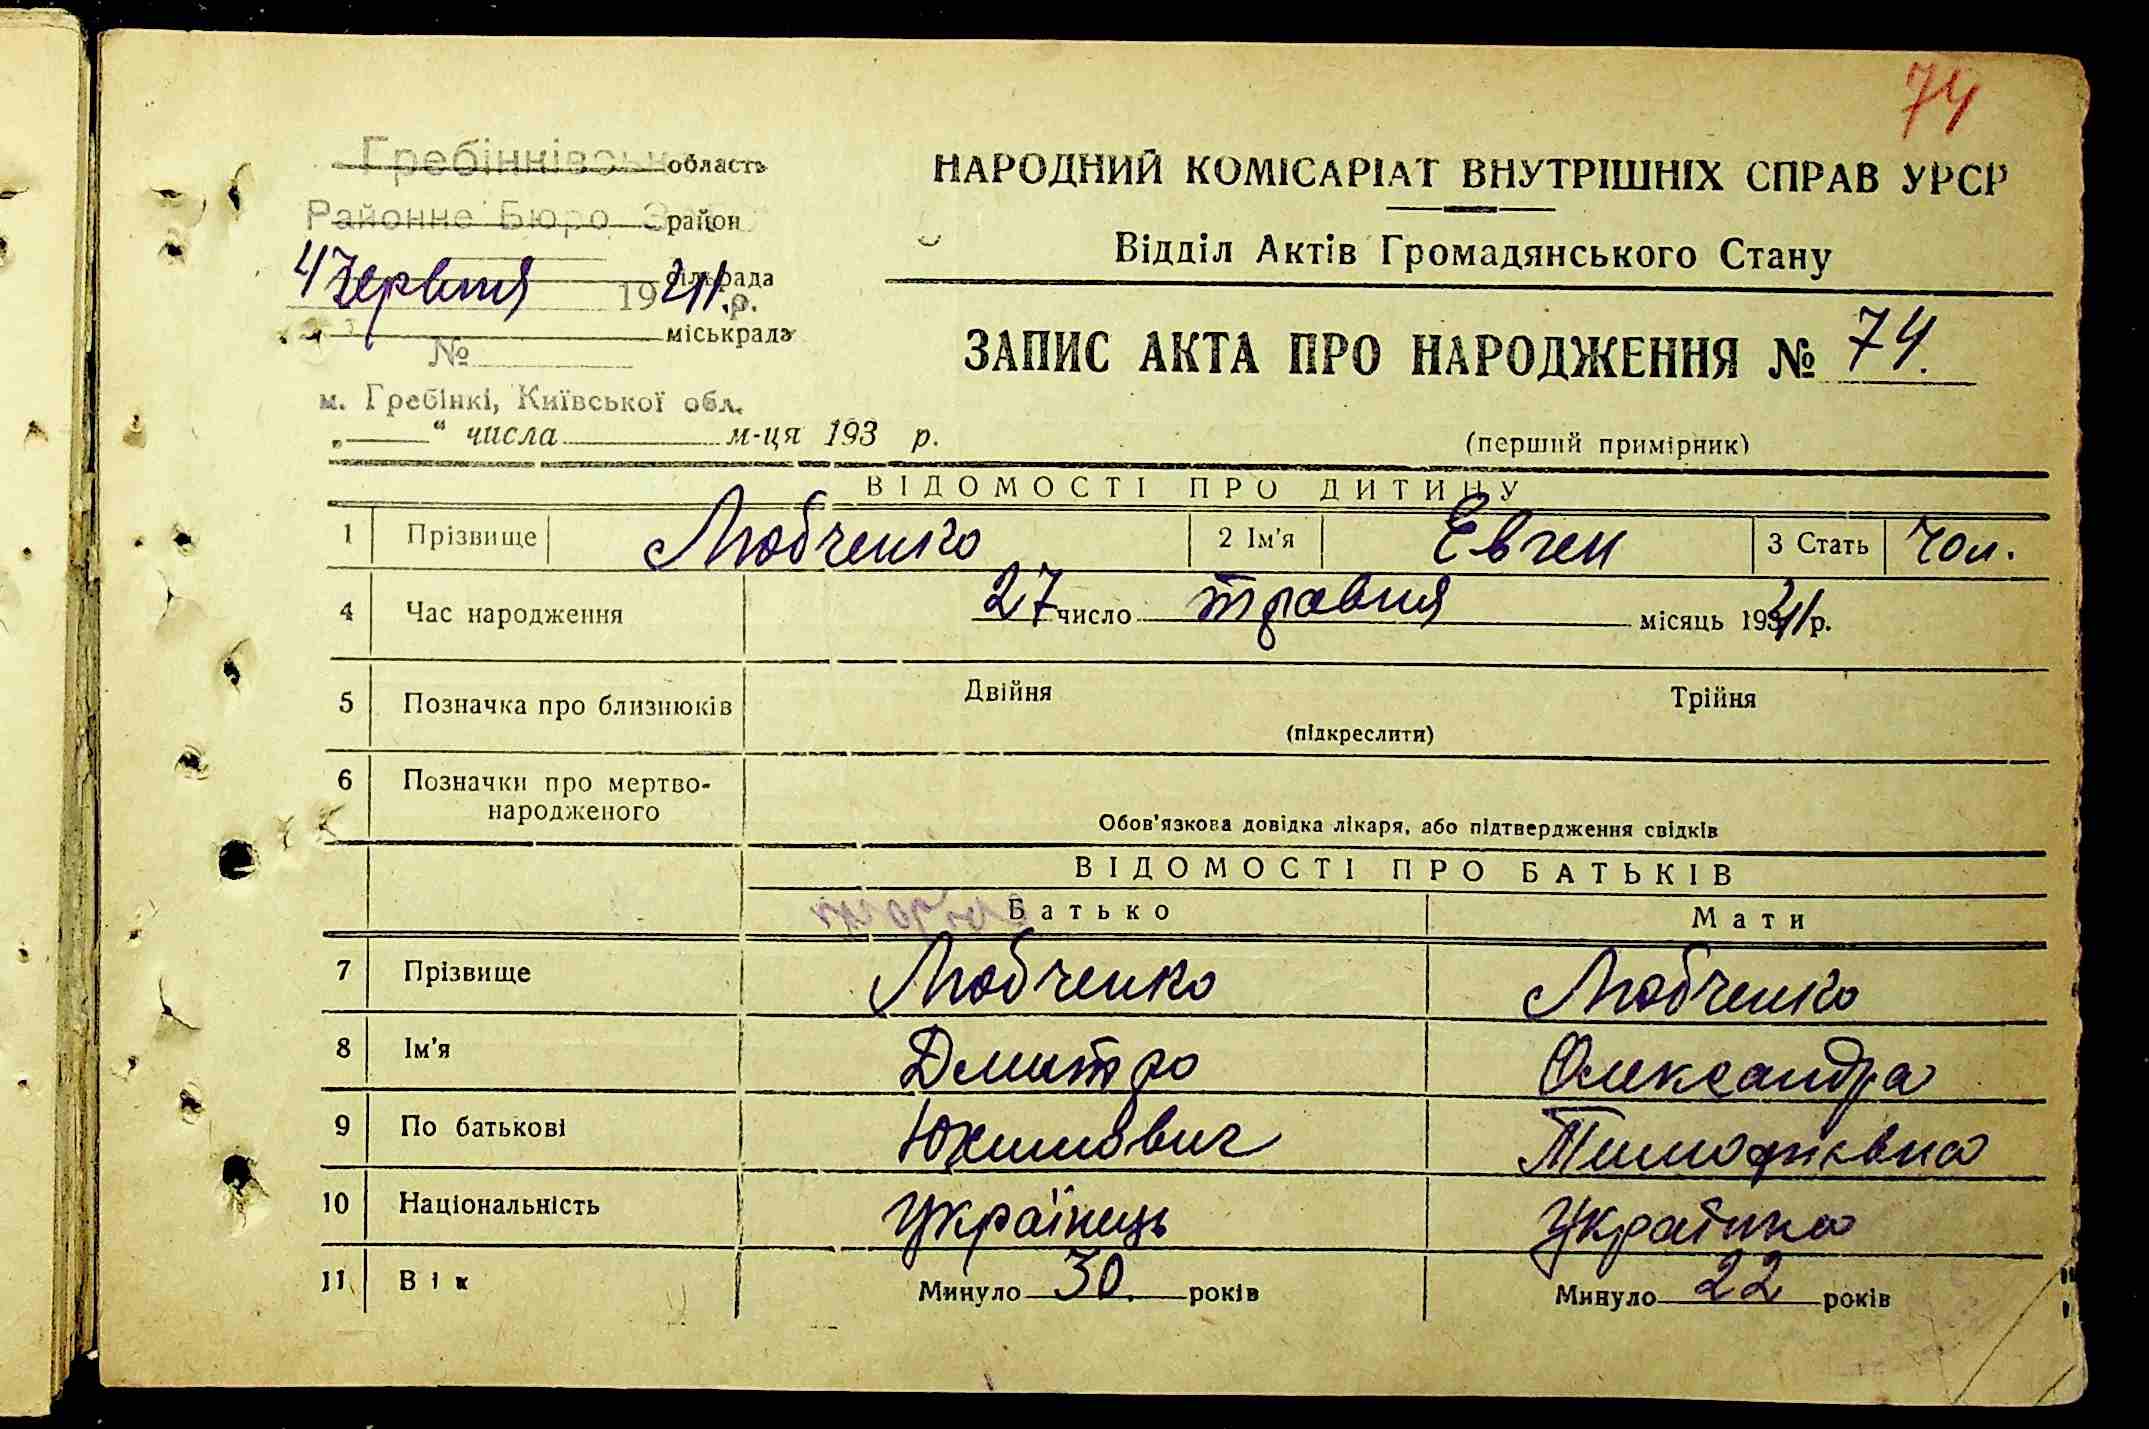 74
Гребінківськ область
Районне Бюро З район
НАРОДНИЙ КОМІСАРІАТ ВНУТРІШНІХ СПРАВ УРСР
Відділ Актів Громадянського Стану
сільрада
4 Червня 1941 р.
міськрада
№
ЗАПИС АКТА ПРО НАРОДЖЕННЯ № 74.
м. Гребінкі, Київської обл.
„ “ числа м-ця 193 р.
(перший примірник)
ВІДОМОСТІ ПРО ДИТИНУ
1 Прізвище Любченко 2 Ім'я Евген 3 Стать Чол.
4 Час народження 27 число травня місяць 1941 р.
5 Позначка про близнюків Двійня Трійня
(підкреслити)
6 Позначки про мертво-
народженого
Обов'язкова довідка лікаря, або підтвердження свідків
ВІДОМОСТІ ПРО БАТЬКІВ
Батько Мати
7 Прізвище Любченко Любченко
8 Ім'я Дмитро Олександра
9 По батькові Юхимович Тимофієвна
10 Національність Українець Українка
11 Вік Минуло 30. років Минуло 22 років